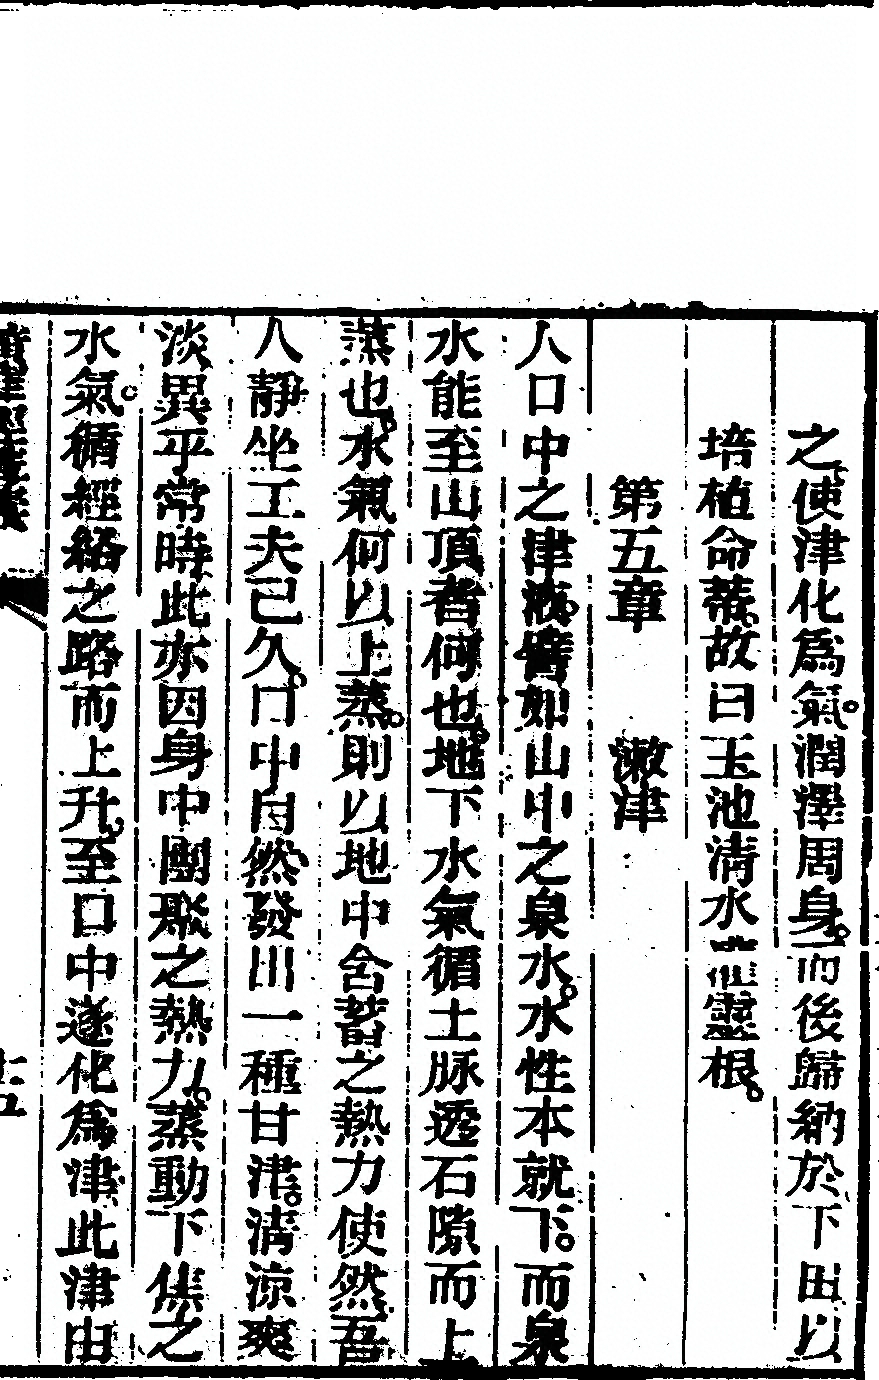 之使津化爲氣。潤澤周身。而後歸納於下田以
培植命蒂。故曰玉池淸水灌靈根。
第五章 漱津
人口中之津液。譬如山中之泉水。水性本就下。而泉
水能至山頂者何也。地下水氣循土脉透石隙而上
蒸也。水氣何以上蒸。則以地中含蓄之熱力使然吾
人靜坐工夫已久。口中自然發出一種甘津。淸涼爽
淡異乎常時此亦因身中團聚之熱力。蒸動下焦之
水氣。循經絡之路而上升。至口中遂化爲津此津由
十五